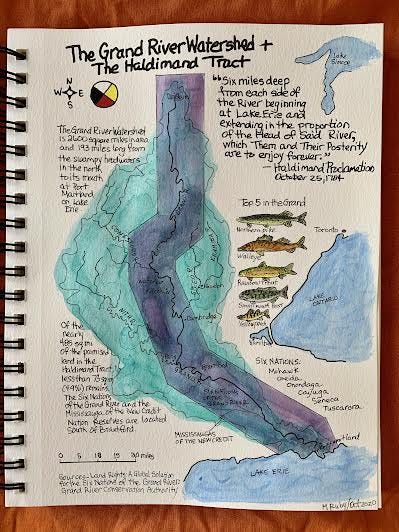 The Grand River Watershed +
The Haldimand Tract
N
W E
S
"Six miles deep
from each side of
the River beginning
at Lake Erie and
extending in the proportion
of the Head of Said River,
which Them and Their Posterity
are to enjoy forever."
- Haldimand Proclamation
October 25, 1784
Lake
Simcoe
The Grand River Watershed
is 2600 square miles in area
and 193 miles long from
the swampy headwaters
in the north
to its mouth
at Port
Maitland
on Lake
Erie
Top 5 in the Grand
Northern Pike
Walleye
Rainbow Trout
Smallmouth Bass
Yellow Perch
Toronto
LAKE
ONTARIO
Hamilton
Cambridge
Brantford
SIX NATIONS
OF THE
GRAND RIVER
MISSISSAUGAS
OF THE NEW CREDIT
SIX NATIONS:
Mohawk
Oneida
Onondaga
Cayuga
Seneca
Tuscarora
Of the
nearly
486 sq mi
of the promised
land in the
Haldimand Tract,
less than 73 sq mi
(4.9%) remains.
The Six Nations
of the Grand River and the
Mississauga of the New Credit
Nation Reserves are located
South of Brantford.
0 5 10 15 20 miles
Sources: Land Rights: A Global Solution
for the Six Nations of The Grand River/
Grand River Conservation Authority/
LAKE ERIE
M. Ruby/Oct 2020